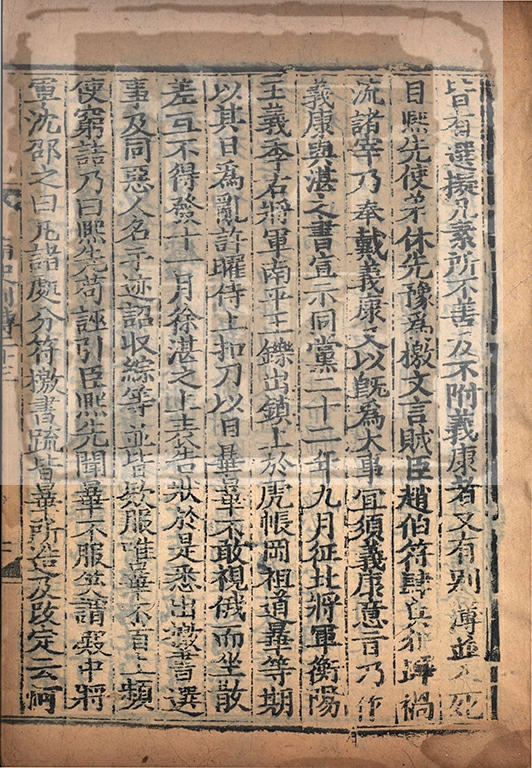 皆有選擬凡素所不善及不附義康者又有別簿並入死
目熙先使弟休先豫爲檄文言賊臣趙伯符肆兵犯蹕禍
流諸宰乃奉戴義康又以旣爲大事宜須義康意旨乃作
義康與湛之書宣示同黨二十二年九月征北將軍衡陽
王義季右將軍南平王鑠出鎮上於虎帳岡祖道曅等期
以其日爲亂許曜侍上扣刀以目曅曅不敢視俄而坐散
差互不得發十一月徐湛之上表告狀於是悉出檄書選
事及同惡人名手迹詔收綜等並皆款服唯曅不首上頻
使窮詰乃曰熙先苟誣引臣熙先聞曅不服笑謂殿中將
軍沈邵之曰凡諸處分符檄書疏皆曅所造及改定云何